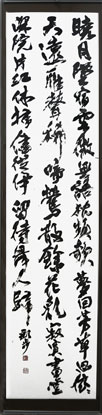 曉月墜宿雲微無語枕頻欹夢回芳草思依依
天遠雁聲稀啼鶯散餘花亂寂寞畫堂
深院片紅休掃儘從伊留待舞人歸